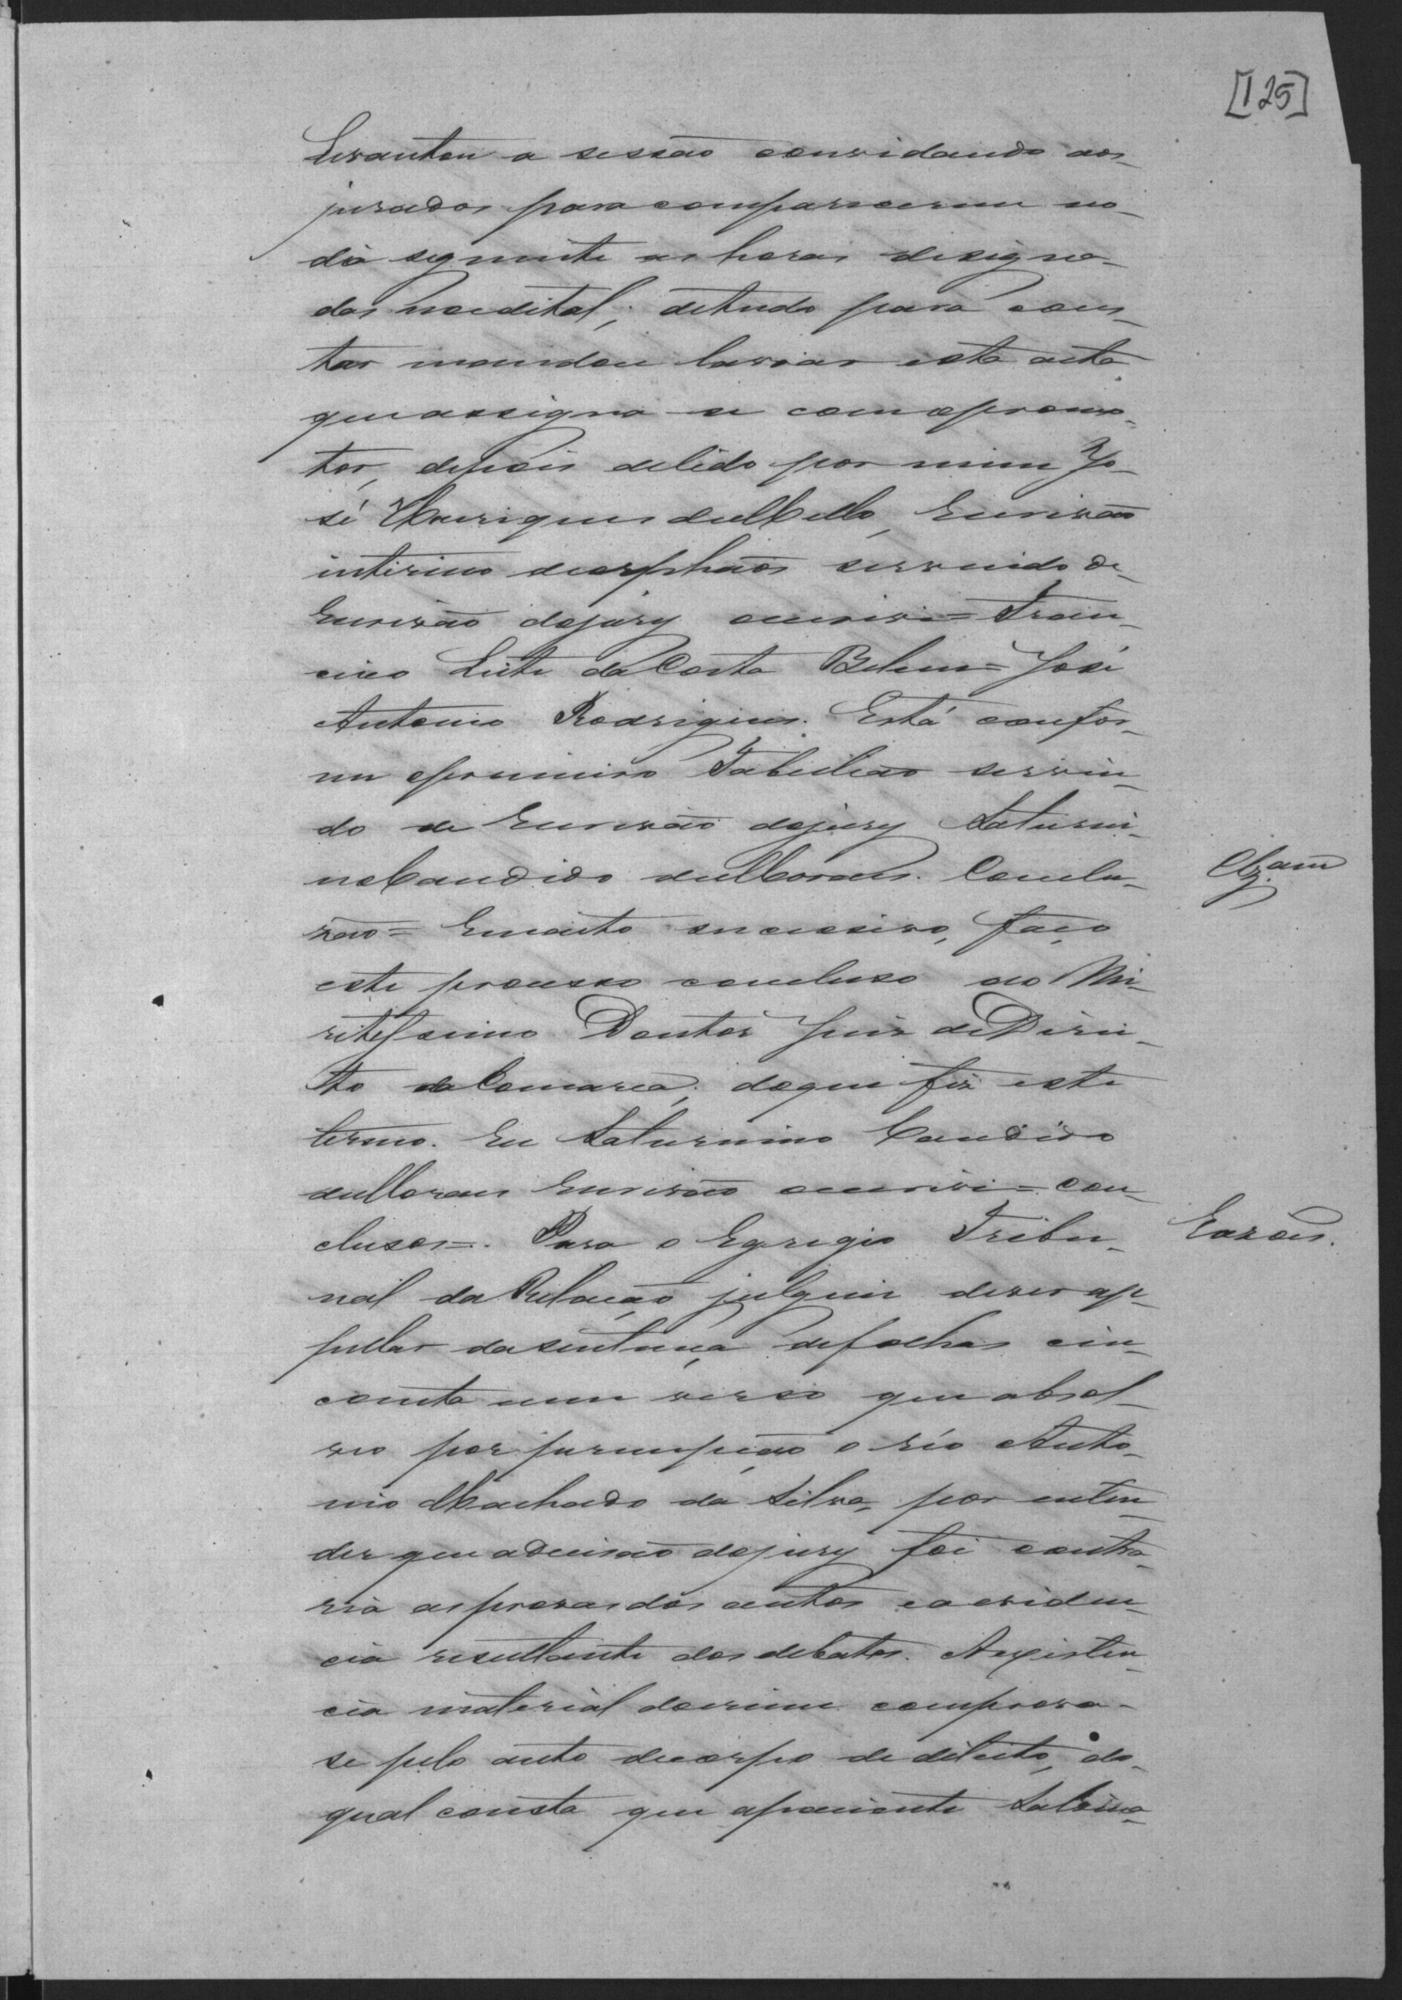 [125]
levantou a sessão convidando aos
jurados para comparecerem no
dia seguinte as horas designa-
das no edital; de tudo para cons-
tar mandou lavrar esta acta
que assigna-se com o promo-
tor, depois de lido por mim Jo-
sé Henriques de Mello, Escrivão
interino de orphãos servindo de
Escrivão do jury escrevi = Fran-
cisco Leite da Costa Belem = José
Antonio Rodrigues. Está confor-
me o primeiro Tabellião servin-
do de Escrivão do jury Saturni-
no Candido de Moraes. Conclu-
zão = Em acto successivo, faço
este processo concluso ao Me-
ritissimo Doutor Juiz de Direi-
to da Comarca; do que fiz este
termo. Eu Saturnino Candido
de Moraes Escrivão escrevi = Con-
clusos =. Para o Egregio Tribu-
Razões.
nal da Relação julguei dever ap-
pellar da sentença de folhas cin-
coenta um verso que absol-
veo por perempção o réo Anto-
nio Machado da Silva, por enten-
der que a decisão do jury foi contra-
ria as provas dos autos e a eviden-
cia resultante dos debates. A existen-
cia material do crime comprova-
se pelo auto de corpo de delicto, do
qual consta que a paciente Sabina